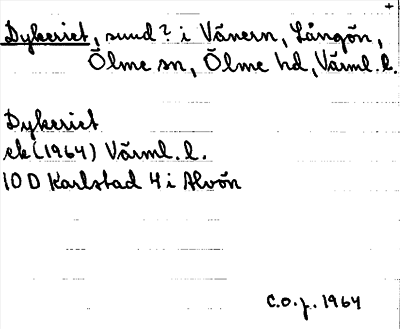 +
Dykeriet, sund? i Vänern, Långön,
Ölme sn, Ölme hd, Värml. l.
Dykeriet
ek (1964) Värml. l.
10 D Karlstad 4 i Alvön
C.O.J. 1964